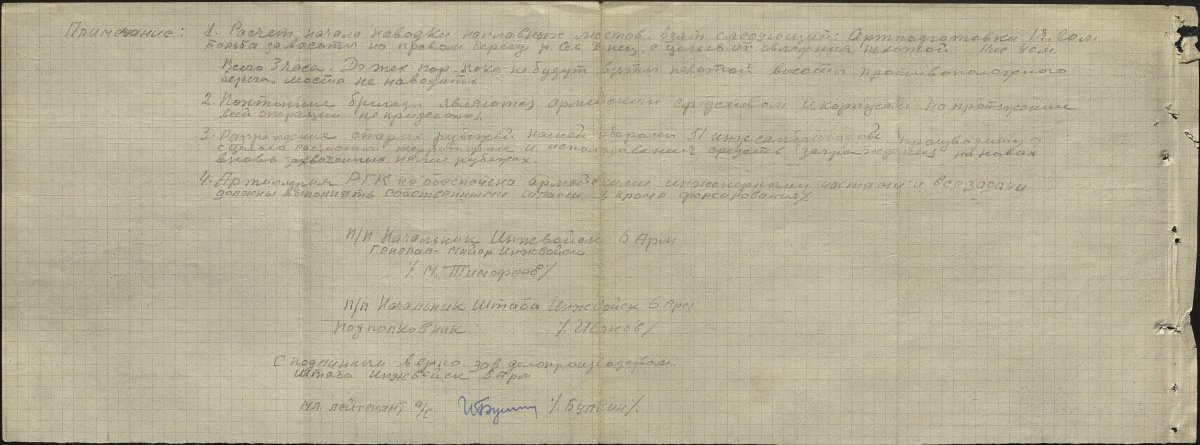 Примечание: 1. Расчет начала наводки наплавных мостов взят следующий: Артподготовка 1ч. 20м
борьба за высоты на правом берегу р. с целью их овладения пехотой 1час 40м.
Всего 3 часа. До тех пор пока не будут взяты пехотой высоты противоположного
берега мосты не наводить.
2. Понтонные бригады являются армейским средством и корпусам на протяжении
всей операции не придаются.
3. старых рубежей нашей обороны 51 производить
с целью местности и использования средств заграждения на новых
вновь захваченных нами рубежах.
4. Артиллерия РГК не обеспечена армейскими инженерными частями и все задачи
должны выполнять собственными силами /кроме форсирования/.
п/п Начальник Инжвойск 5 Арм
Генерал-майор Инжвойск
/М. Тимофеев/
п/п Начальник Штаба Инжвойск 5 Арм
Подполковник /Иванов/
С подлинным верно: зав делопроизводством
Штаба Инжвойск 5 Арм
мл. лейтенант а/с /Бункин/.